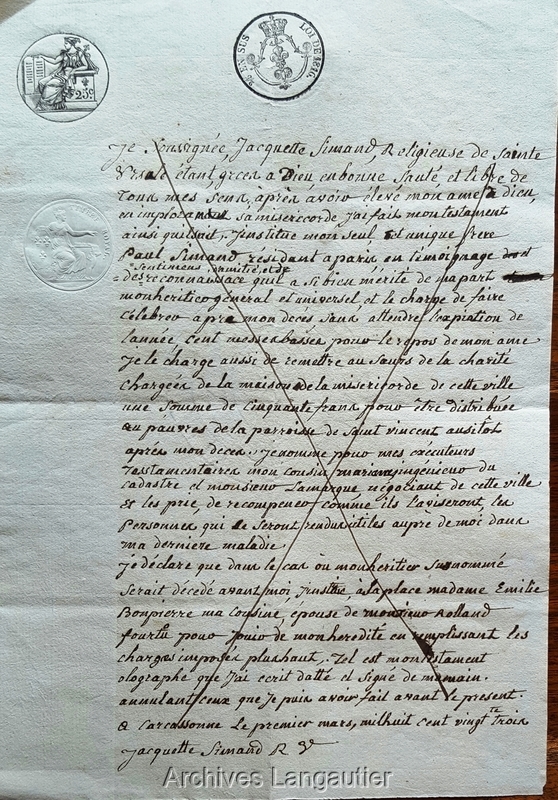 25c
25 EN SUS LOI DE 1816
Je Soussignée Jacquette Simand, Religieuse de Sainte
Ursule étant, grces a Dieu en bonne Santé et libre de
tous mes Sens, après avoir élevé mon ame a dieu,
en implorant sa misericorde J'ai fait mon testament
ainsi quil suit, J'institue mon seul et unique frere
Paul Simand, résidant a paris, en témoignage
Sentimens damitié, et de
des reconnaissace quil a si bien mérité de ma part
mon heritier général et universel, et le charge de faire
célebrer apre mon décés sans attendre l'expiration de
lannée cent messes basses pour le repos de mon ame
Je le charge aussi de remettre au Sœurs de la charité
chargées de la maison de la misericorde de cette ville
une somme de cinquante frans pour être distribuée
au pauvres de la parroisse de Saint vincent ausitot
après mon deces. Je nomme pour mes exécuteurs
Testamentaires mon cousin ingenieur du
cadastre et monsieur Lamarque négociant de cette ville
& les prie, de recompenser comme ils laviseront, les
Personnes qui se seront rendus utiles aupre de moi dans
ma derniere maladie
Je déclare que dans le cas ou mon heritier Susnommé
Serait décedé avant moi Jnstitue à la place madame Emilie
Bonpierre ma cousine épouse de monsieur Rolland
fourtu pour jouir de mon heredité en remplissant les
charges imposés plus haut, Tel est mon testament
olographe que J'ai ecrit datté et signé de ma main.
annulant ceux que Je puis avoir fait avant le present.
a Carcassonne Le premier mars, mil huit cent vingt trois
Jacquette Simand R
Archives Langautier